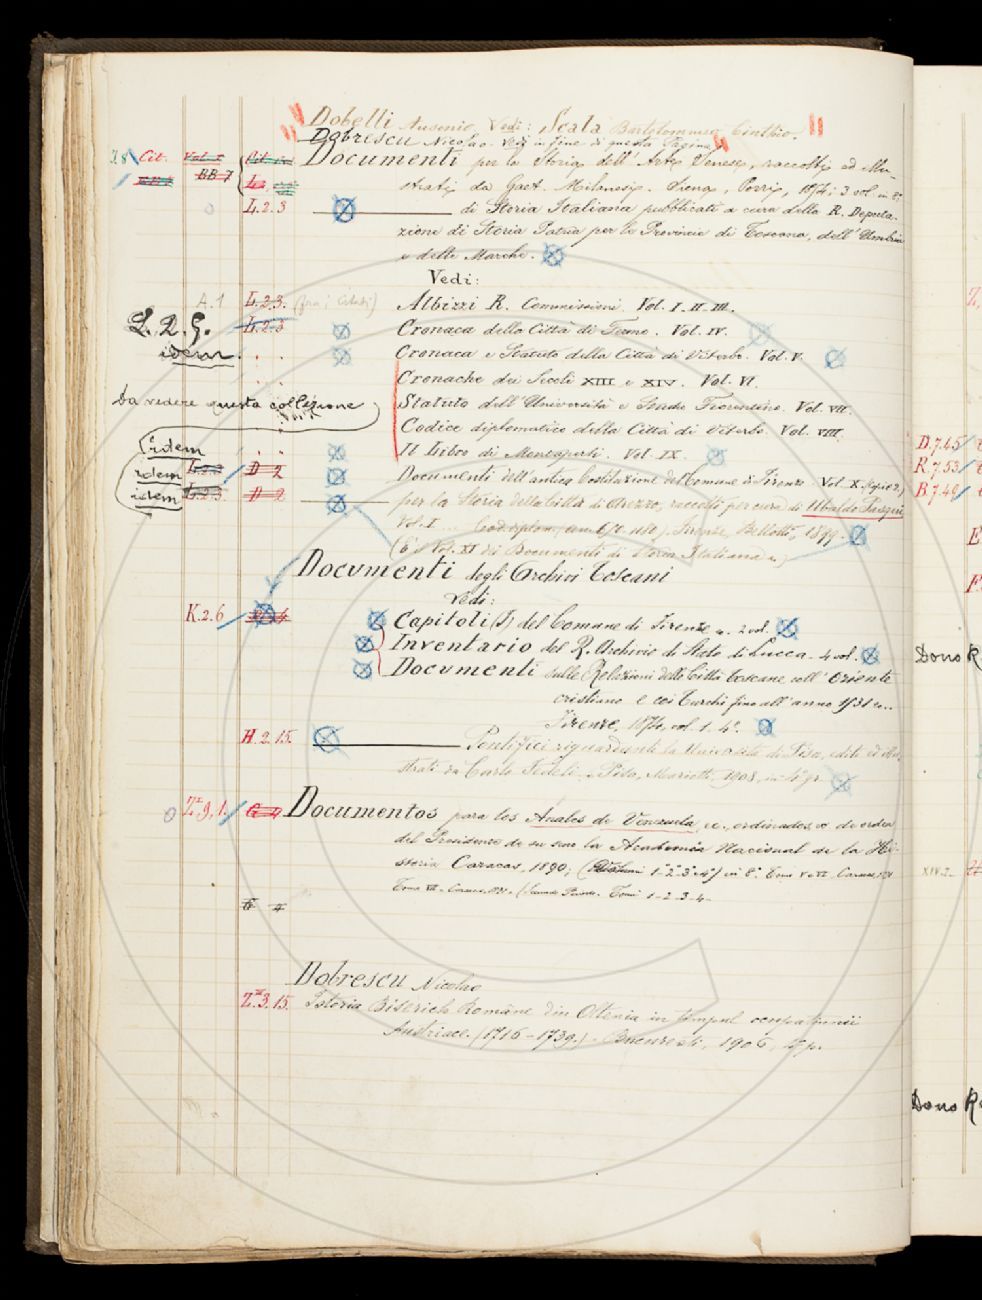 Dobelli Ausonio. Vedi: Scala Bartolommeo Cinthio.
Dobrescu Nicolao. Vedi in fine di questa Pagina
I.8 Cit. Vol. I Documenti per la Storia dell'Arte Senese, raccolti ed illu-
BB 7 L. strati da Gaet. Milanesi. Siena, Porri, 1854; 3 vol. in 8º
L.2.3 di Storia Italiana pubblicati a cura della R. Deputa-
zione di Storia Patria per le Provincie di Toscana, dell'Umbria
e delle Marche.
Vedi:
A.1 L.2.3. (fra i Citati) Albizzi R. Commissioni. Vol. I. II. III.
L.2.3 Cronaca della Città di Fermo. Vol. IV.
L.2.3.
idem. Cronaca e Statuto della Città di Viterbo. Vol. V.
Cronache dei Secoli XIII e XIV. Vol. VI.
Da vedere questa collezione Statuto dell'Università e Studio Fiorentino. Vol. VII.
Codice diplomatico della Città di Viterbo. Vol. VIII.
Idem Il Libro di Montaperti. Vol. IX.
idem L.2.3 D 2 Documenti dell'antica Costituzione del Comune di Firenze Vol. X.
idem L.2.3. D 2 per la Storia della Città di Arezzo, raccolti per cura di Ubaldo Pasqui
Vol. I Firenze, Bellotti, 1899.
(È il Vol. XI dei Documenti di Storia Italiana
Documenti degli Archivi Toscani
Vedi:
K.2.6 Capitoli (I) del Comune di Firenze 2 vol.
Inventario del R. Archivio di Stato di Lucca 4 vol.
Documenti sulle Relazioni delle Città Toscane coll'Oriente
cristiano e coi Turchi fino all'anno 1531
Firenze, 1874, vol. 1. 4º.
H.2.15. Pontifici riguardanti la Università di Pisa, editi ed illu-
strati da Carlo Fedeli. Pisa, Mariotti, 1908, in 4º gr.
Zª.9,1. G 4 Documentos para los Anales de Venezuela, ordinados de orden
del Presidente de su seno la Academia Nacional de la Hi-
storia Caracas, 1890; 1-2-3-4) in 8º. Tomi V e VI. Caracas, 1891
Tomo VII. Caracas, 1891. (Secundo Periodo. Tomi 1-2-3-4-
G 4
Dobrescu Nicolao
Z.3.15. Istoria Bisericii Române din Oltenia in timpul ocupatiunii
Austriace. (1716-1739.). Bucuresti, 1906, 4º p.
D.7.45
R.7.53
B.7.49
E
F.
Dono R
XIV.7.
Dono R